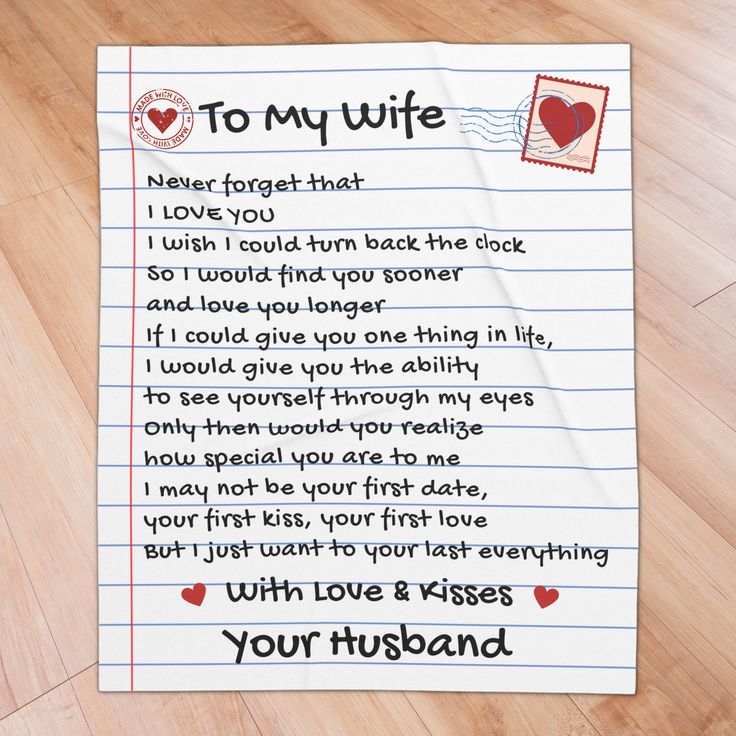 MADE WITH LOVE
MADE WITH LOVE
To My Wife
Never forget that
I LOVE YOU
I wish I could turn back the clock
So I would find you sooner
and love you longer
If I could give you one thing in life,
I would give you the ability
to see yourself through my eyes
Only then would you realize
how special you are to me
I may not be your first date,
your first kiss, your first love
But I just want to your last everything
With Love & Kisses
Your Husband